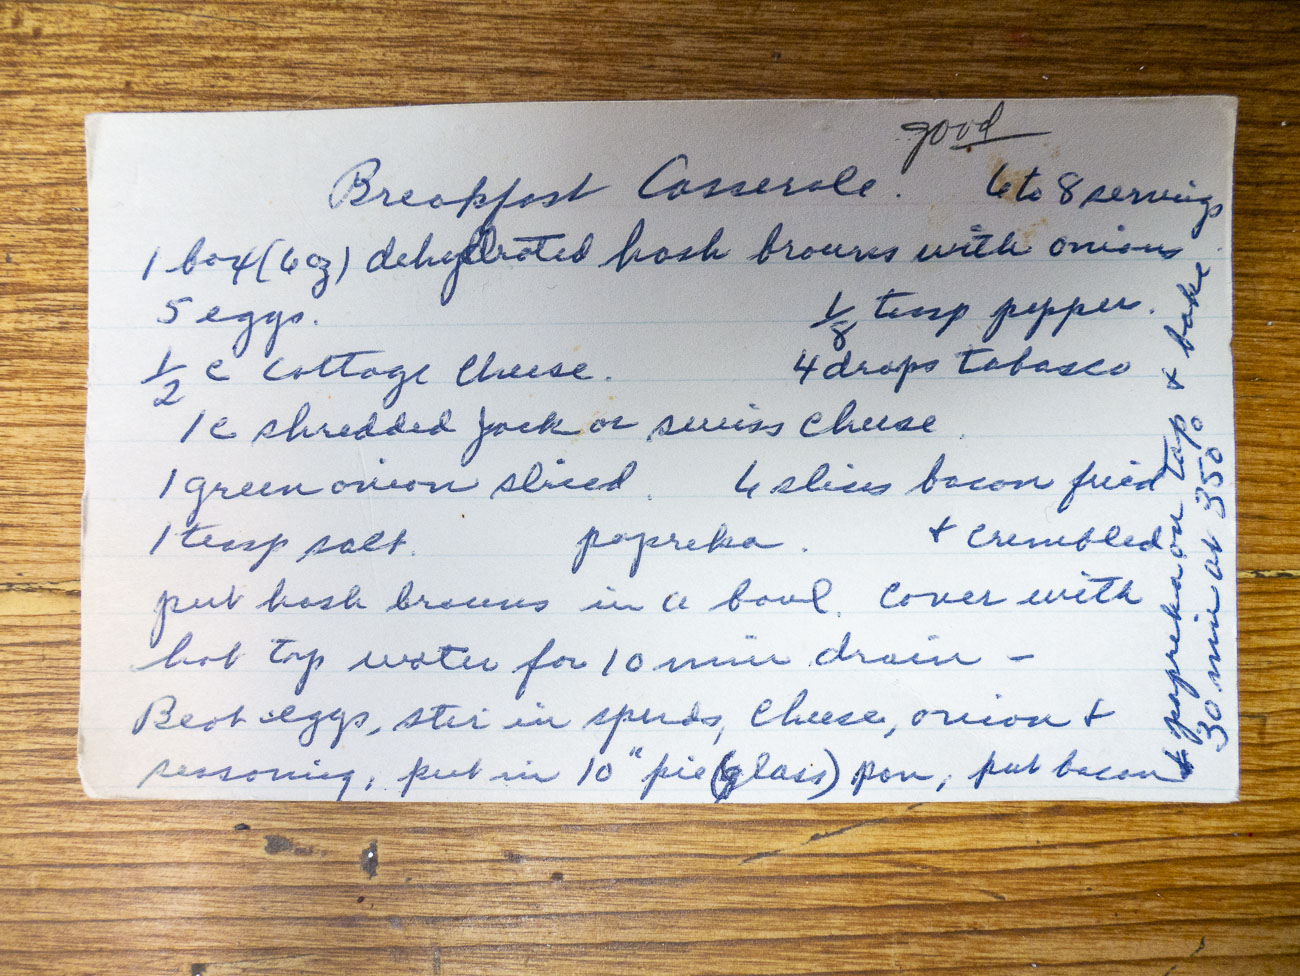 good
Breakfast Casserole. 6 to 8 servings
1 box (6 oz) dehydrated hash browns with onions
5 eggs. 1/8 teasp pepper.
1/2 c cottage cheese. 4 drops tabasco
1 c shredded jack or swiss cheese.
1 green onion sliced. 6 slices bacon fried
1 teasp salt. papreka. + crembled
put hash browns in a bowl. Cover with
hot tap water for 10 min drain -
Beat eggs, stir in spuds, cheese, onion +
seasoning, put in 10" pie (glass) pan, put bacon
+ papreka on top + bake
30 min at 350°